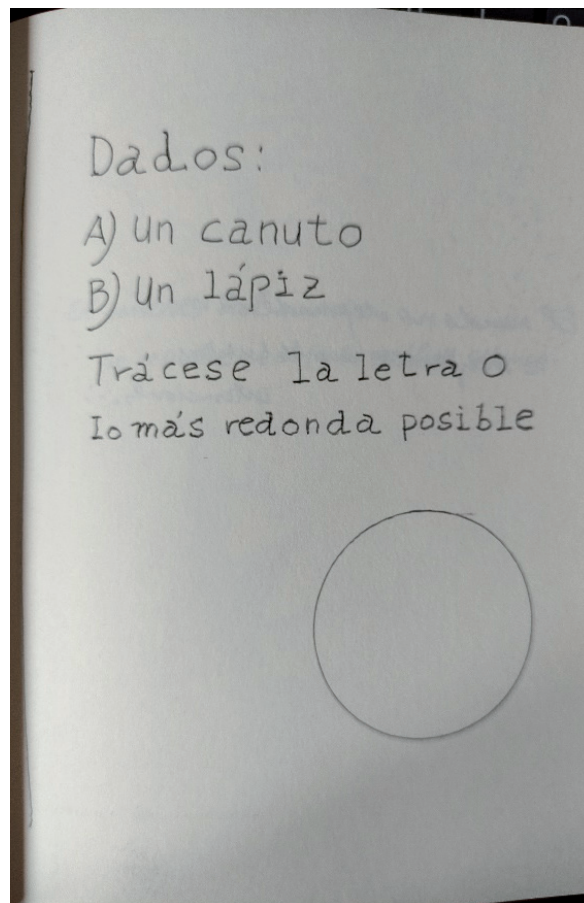 Dados:
A) Un canuto
B) Un lápiz
Trácese la letra O
lo más redonda posible